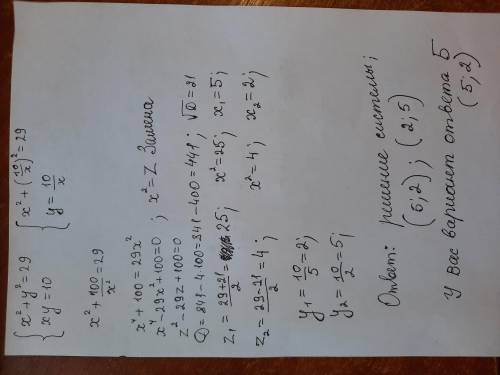 { x² + y² = 29
{ xy = 10
{ x² + (10/x)² = 29
{ y = 10/x
x² + 100/x² = 29
x⁴ + 100 = 29x²
x⁴ - 29x² + 100 = 0 ; x² = Z Замена
Z² - 29Z + 100 = 0
D = 841 - 4·100 = 841 - 400 = 441; √D = 21
Z₁ = (29+21)/2 = 25; x² = 25; x₁ = 5;
Z₂ = (29-21)/2 = 4; x² = 4; x₂ = 2;
y₁ = 10/5 = 2;
y₂ = 10/2 = 5;
Ответ: решение системы;
(5;2); (2;5)
У Вас вариант ответа Б
(5;2)